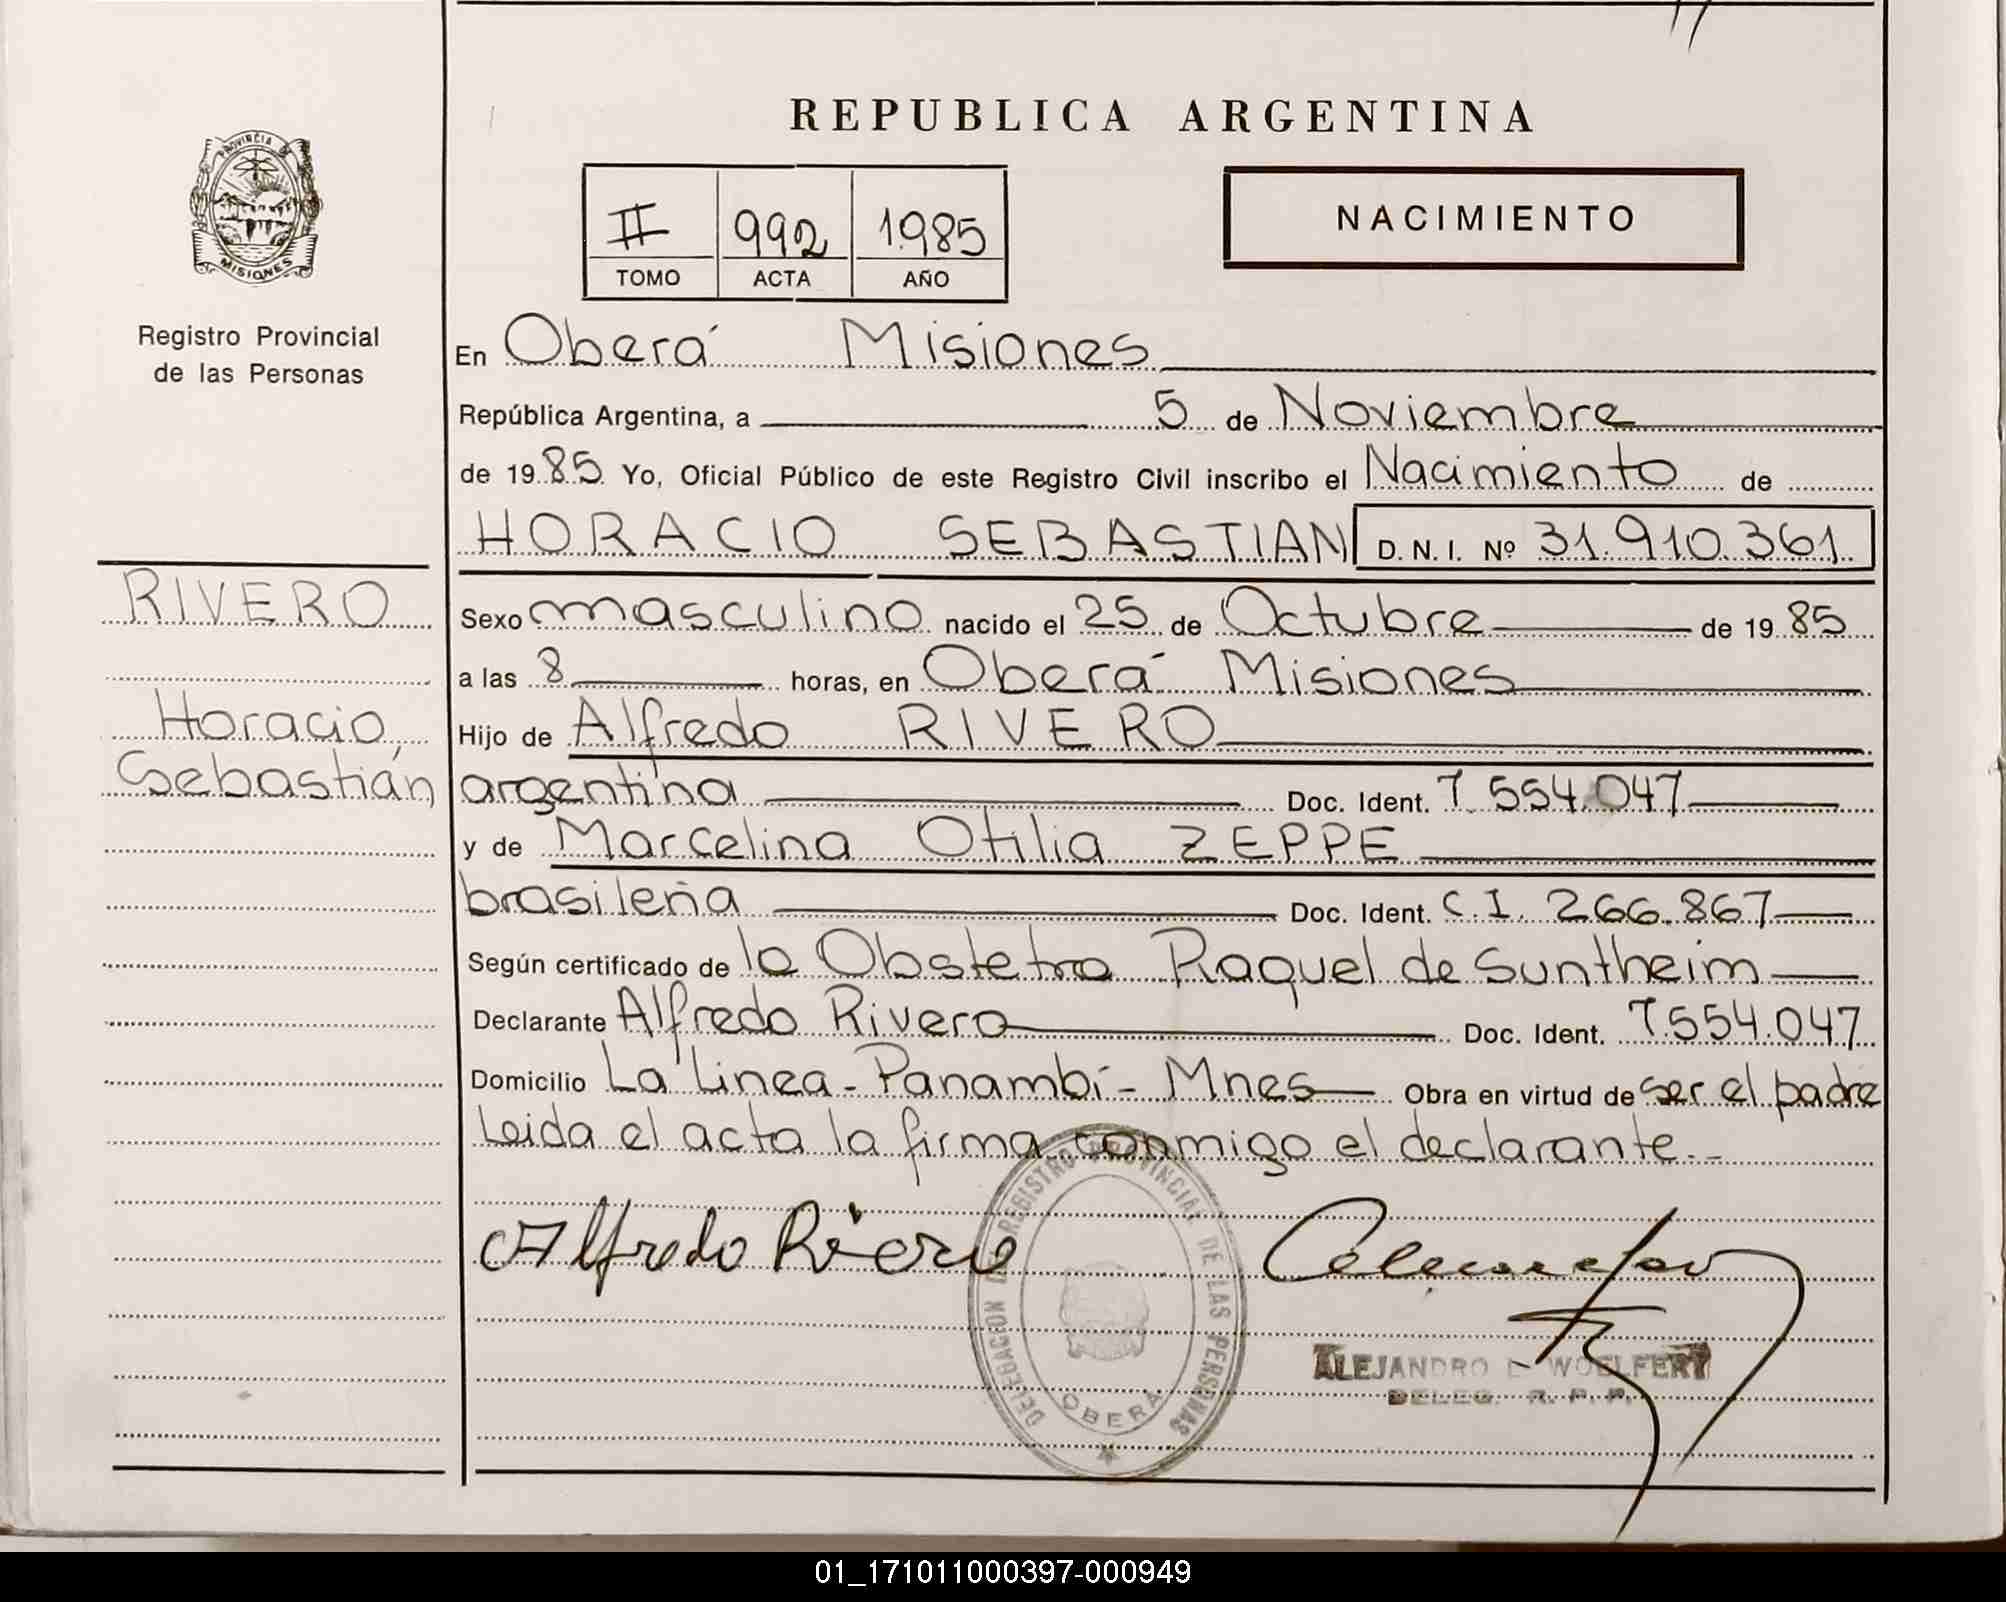 REPUBLICA ARGENTINA
PROVINCIA DE
MISIONES
Registro Provincial
de las Personas
II 992 1985
TOMO ACTA AÑO
NACIMIENTO
En Oberá Misiones
República Argentina, a 5 de Noviembre
de 1985 Yo, Oficial Público de este Registro Civil inscribo el Nacimiento de
HORACIO SEBASTIAN D. N. I. Nº 31.910.361
RIVERO
Horacio,
Sebastián
Sexo masculino nacido el 25 de Octubre de 1985
a las 8 horas, en Oberá Misiones
Hijo de Alfredo RIVERO
argentina Doc. Ident. 7.554.047
y de Marcelina Otilia ZEPPE
brasileña Doc. Ident. C.I. 266.867
Según certificado de la Obstetra Raquel de Suntheim
Declarante Alfredo Rivero Doc. Ident. 7.554.047
Domicilio La Linea - Panambí - Mnes Obra en virtud de ser el padre
Leida el acta la firma conmigo el declarante.-
Alfredo Rivero
DELEGACION DEL REGISTRO PROVINCIAL DE LAS PERSONAS
OBERÁ
ALEJANDRO E. WOELFERT
DELEG. R. P. P.
01_171011000397-000949